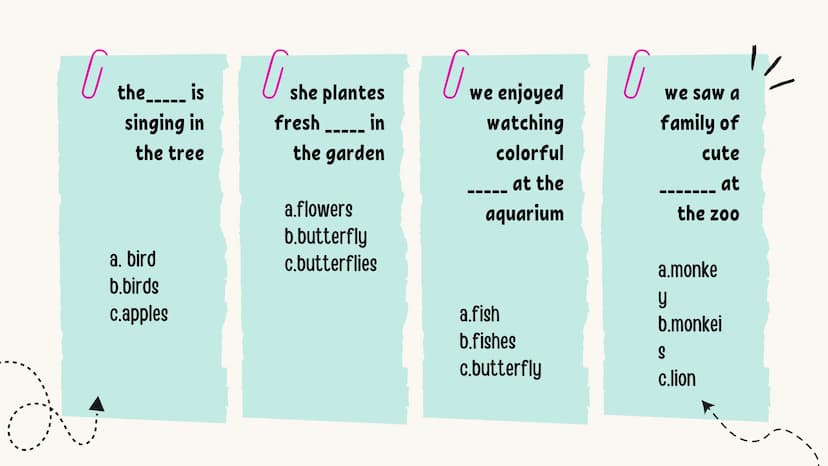 the_____ is
singing in
the tree
a. bird
b.birds
c.apples
she plantes
fresh _____ in
the garden
a.flowers
b.butterfly
c.butterflies
we enjoyed
watching
colorful
_____ at the
aquarium
a.fish
b.fishes
c.butterfly
we saw a
family of
cute
_______ at
the zoo
a.monke
y
b.monkei
s
c.lion